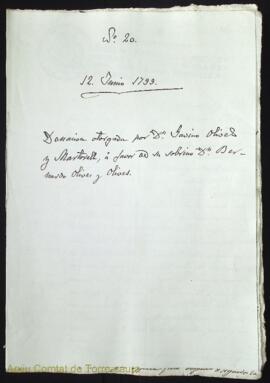 Nº 20.
12. Junio 1793.
Donacion otorgada por Dⁿ Gavino Olives
y Martorell, á favor de su sobrino Dⁿ Ber-
nardo Olives y Olives.
Arxiu Comtal de Torre-saura